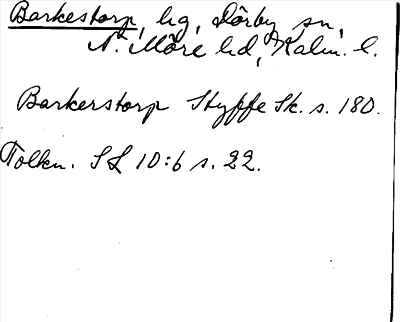 Barkestorp, hg, Dörby sn,
N. Möre hd, Kalm. l.
Barkerstorp Styffe Sk. s. 180.
Tolkn. SL 10:6 s. 22.